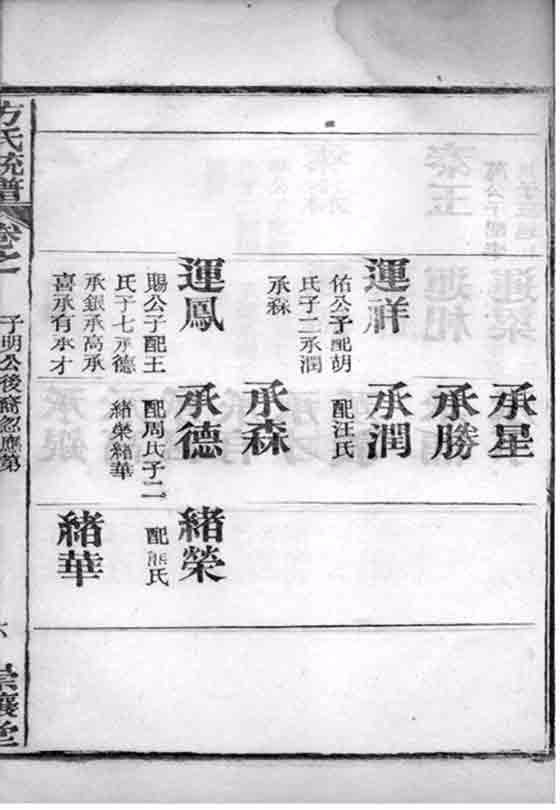 運祥
佑公子配胡
氏子二承潤
承森
運鳳
賜公子配王
氏子七承德
承銀承高承
喜承有承才
承星
承勝
承潤
配汪氏
承森
承德
配周氏子二
緒榮緒華
緒榮
配熊氏
緒華
方氏統譜
卷之一
子明公後裔忽應第
六
崇讓堂